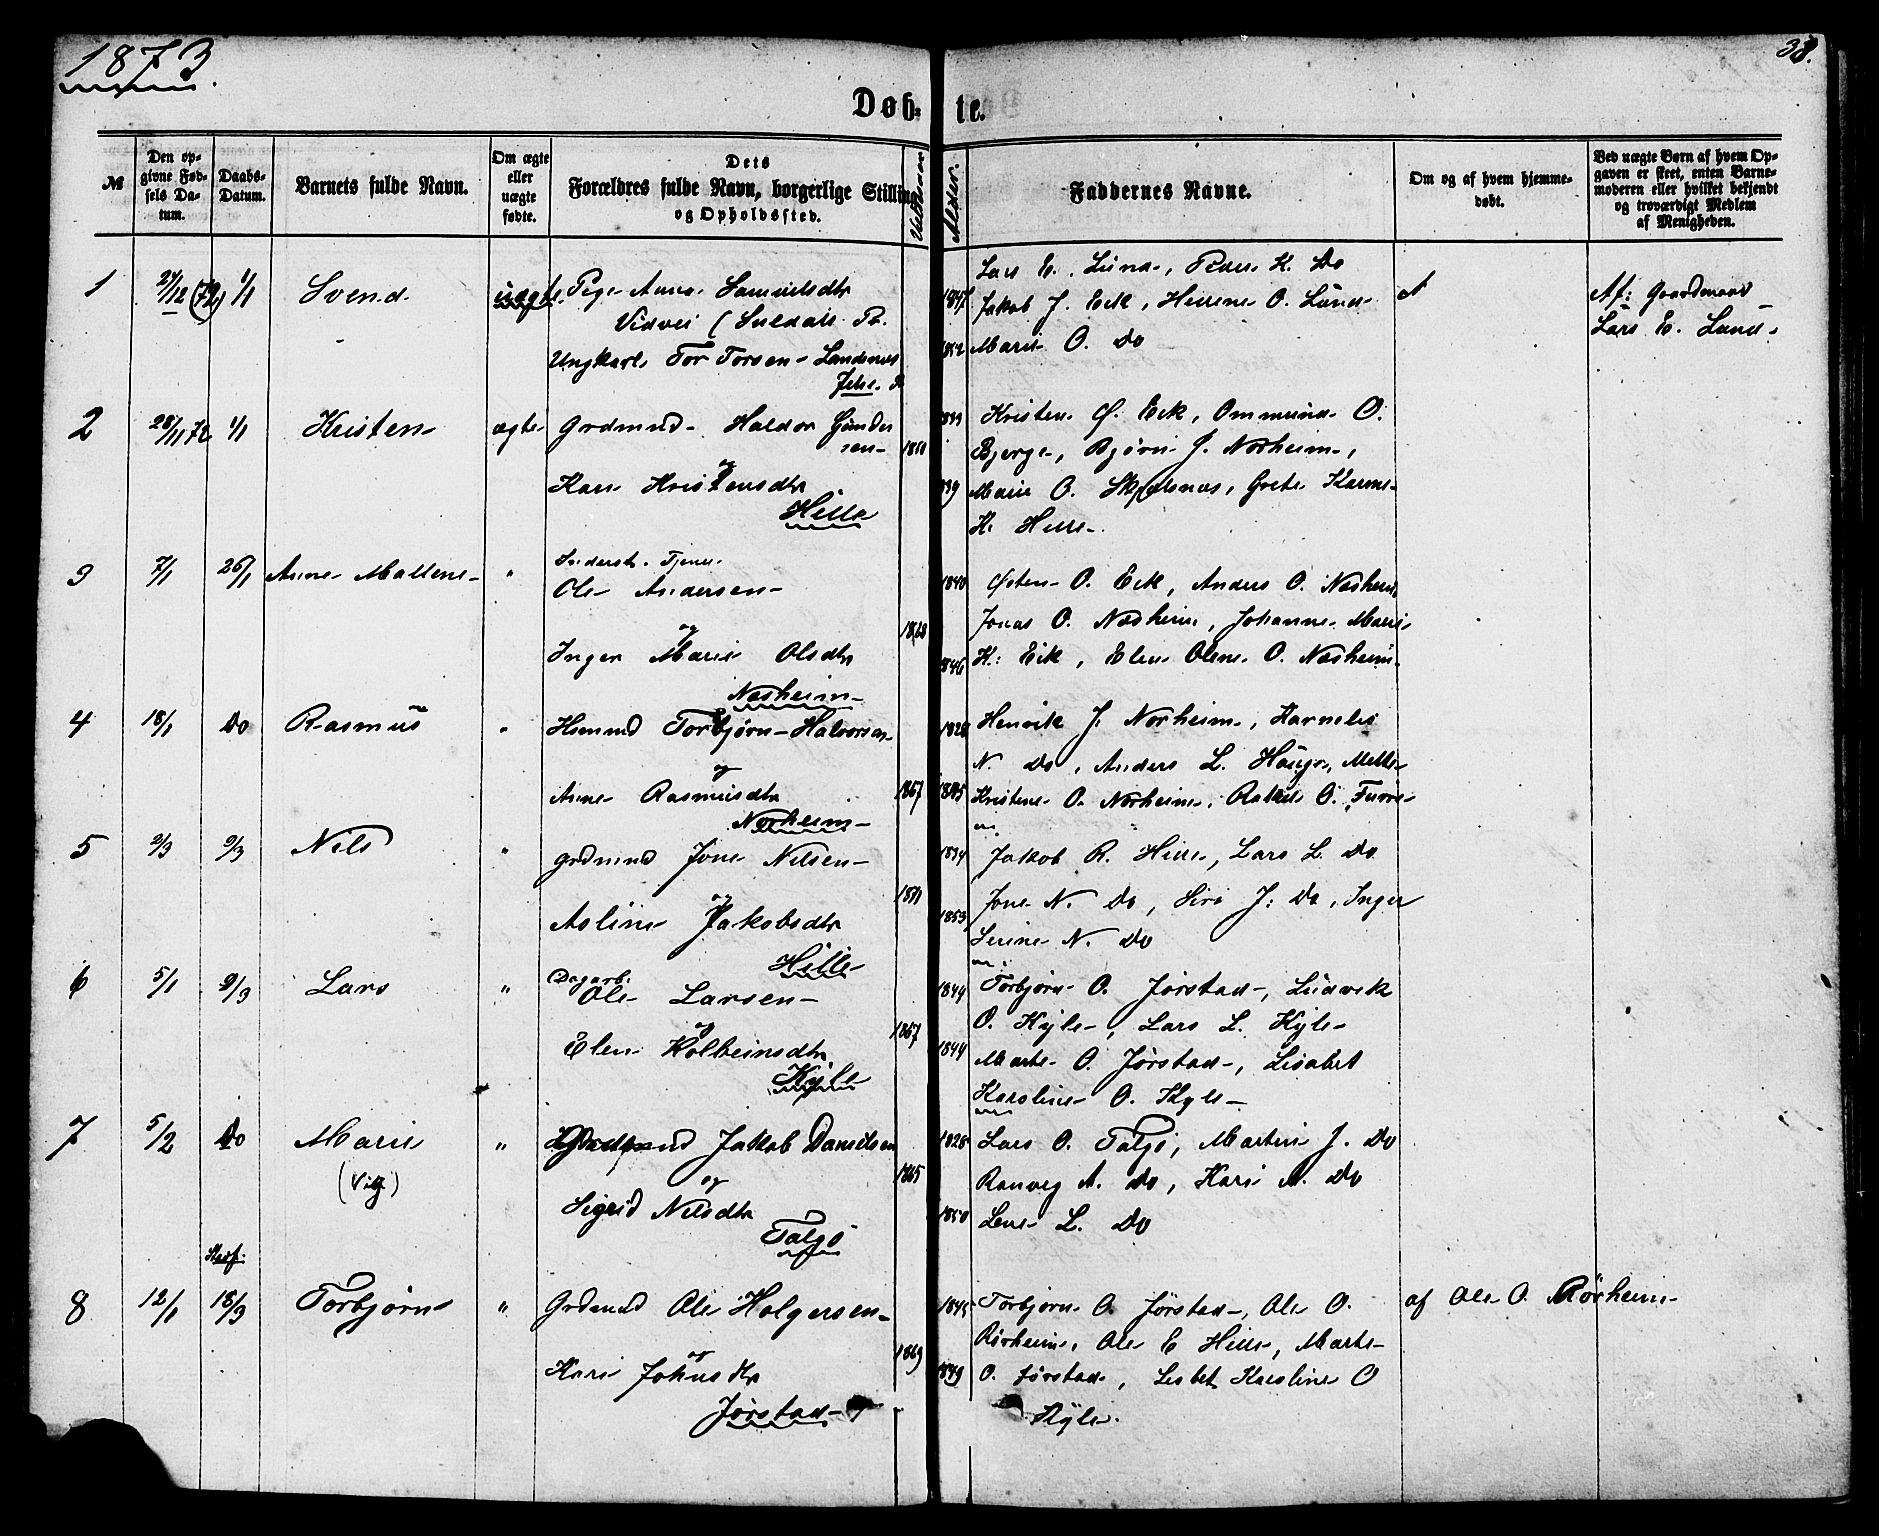 1873.
38.
Døbte.
№
Den opgivne Fødsels Datum.
Daabs-Datum.
Barnets fulde Navn.
Om ægte eller uægte fødte.
Dets Forældres fulde Navn, borgerlige Stilling og Opholdssted.
Alder.
Faddernes Navne.
Om og af hvem hjemmedøbt.
Ved uægte Børn af hvem Opgaven er skeet, enten Barnemoderen eller hvilket bekjendt og troværdigt Medlem af Menigheden.
1 27/12 (72) 1/1 Svend uægte. Pige Anna Samuelsdtr
Vidvei (Suldals Pr.
Ungkarl Tor Torsen Landsnes
Jelse P.
1847 1852
Lars E. Lund, Peder K. Do
Jakob J. Eek, Helene O. Lund
Marie O. Do
Af: Gaardmand
Lars E. Lund.
2 28/11 72 1/1 Kristen ægte Grdmnd Haldor Gundersen
og
Kari Kristensdtr
Hille
1839
Kristen Ø. Eek, Ommund O.
Bjerge, Bjørn J. Norheim,
Marie O. Skjelsnæs, Grete Karine
K. Hille.
3 7/1 26/1 Anne Mallene " Inderst. Tjener.
Ole Andersen
og
Inger Marie Olsdtr
Næsheim
1868 1840 1846
Østen O. Eek, Anders O. Næsheim
Jonas O. Næsheim, Johanne Marie
K: Eik, Elen Olene O. Næsheim
4 18/1 Do Rasmus " Hsmnd Torbjørn Halvorsen
og
Anne Rasmusdtr
Norheim
1867 1828 1845
Henrik J. Norheim, Karnelis
N. Do, Anders L. Hauge, Mette
Kristene O. Norheim, Rakel O. Furre
5 2/3 9/3 Nils " Grdmnd Jone Nilsen
og
Asline Jakobsdtr
Hille
1871 1834 1853
Jakob R. Hille, Lars L. Do
Jone N. Do, Siri J: Do, Inger
Serine N. Do
6 5/1 9/3 Lars " Dagarb:
Ole Larsen
og
Elen Kolbeinsdtr
Kyle
1867 1844 1844
Torbjørn O. Jørstad, Ludvik
O. Kyle, Lars L. Kyle
Marte O. Jørstad, Lisabet
Karoline O. Kyle
7 5/2 Do Marie " Grdmnd Jakob Danielsen
(Vig)
og
Sigrid Nilsdtr
Talgø
1865 1828 1850
Lars O. Talgø, Martin J. Do
Ranveg A. Do, Kari A. Do
Lene L. Do
8 12/1 18/3 Torbjørn " Grdmnd Ole Holgersen
og
Kari Johnsdtr
Jørstad
1869 1845 1849
Torbjørn O. Jørstad, Ole O.
Rørheim, Ole E Hille, Marte
O. Jørstad, Lisbet Karoline O
Kyle.
af Ole O. Rørheim